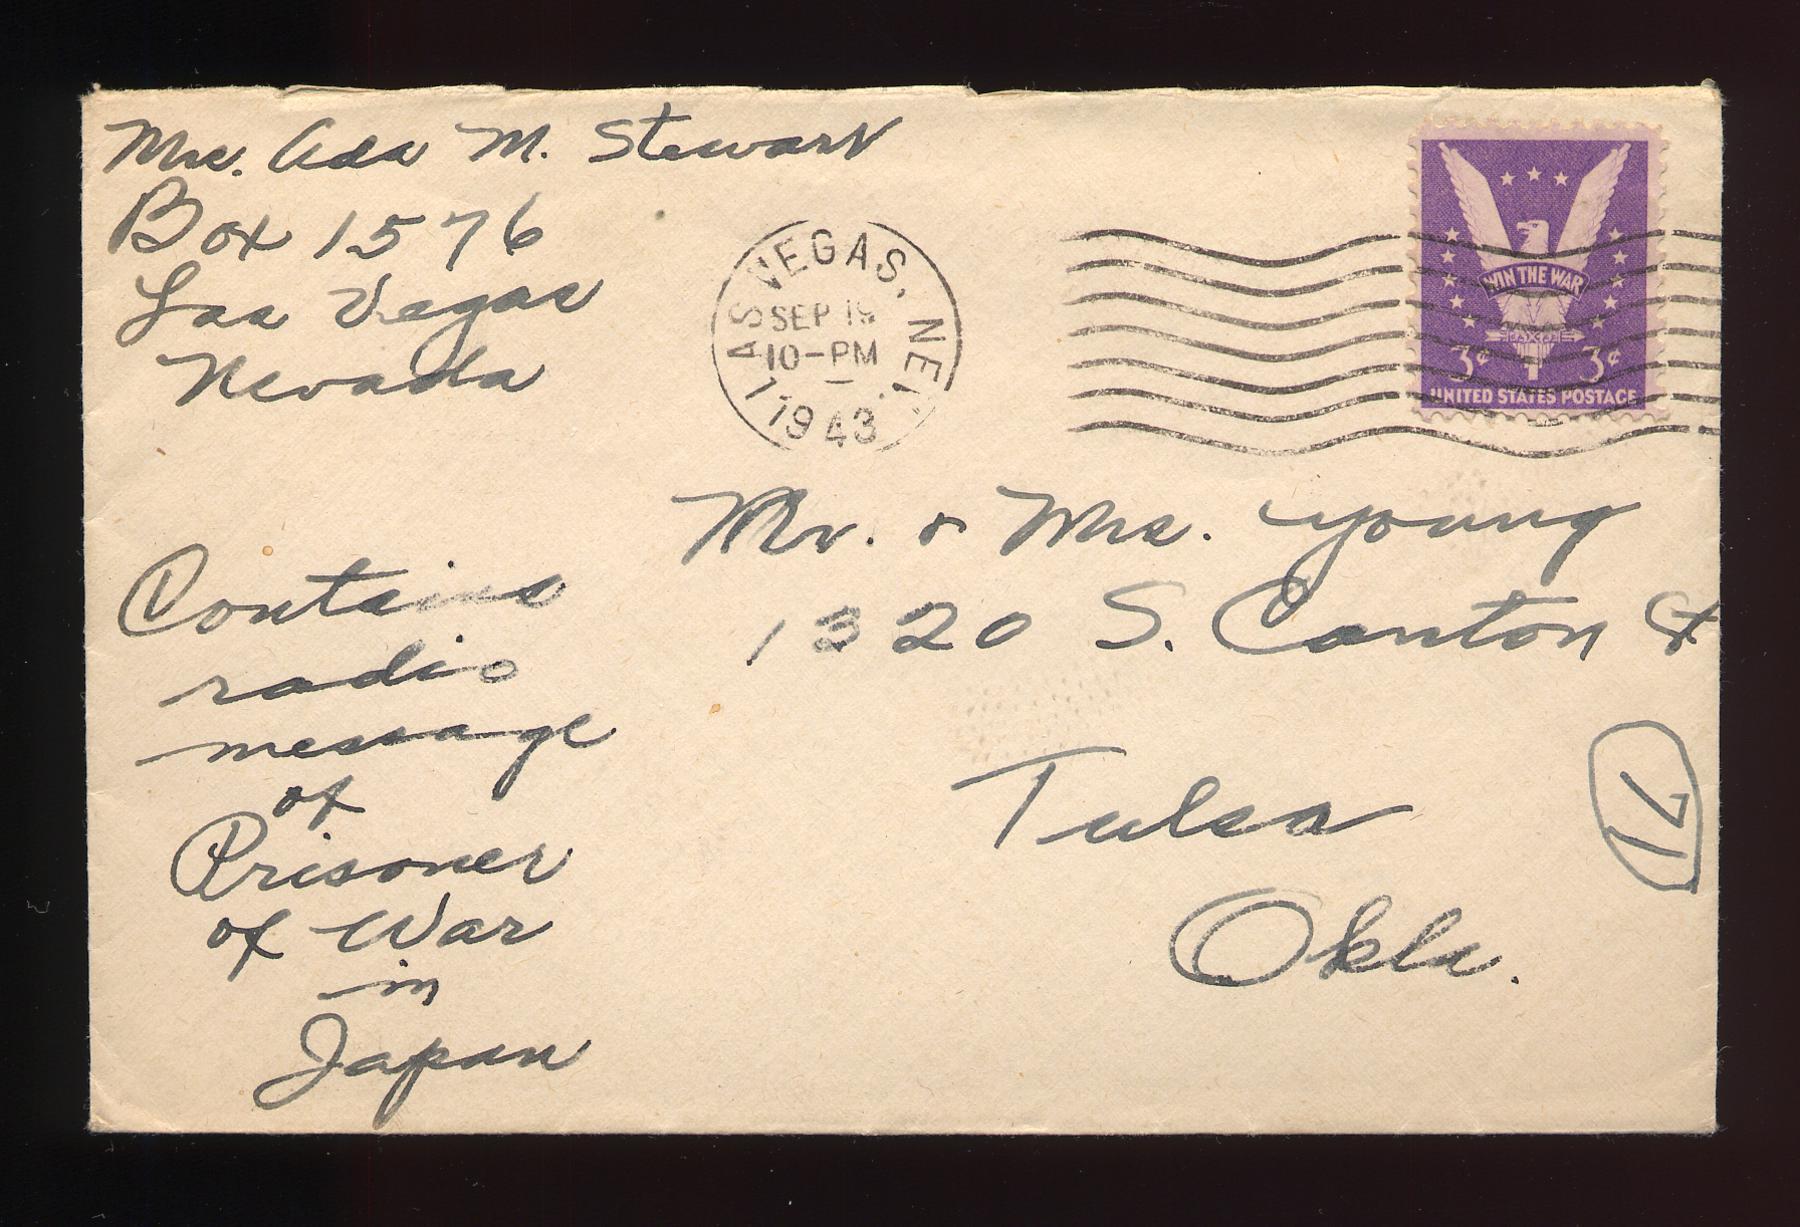 Mrs. Ada M. Stewart
Box 1576
Las Vegas
Nevada
LAS VEGAS, NEV.
SEP 19
10-PM
1943
WIN THE WAR
3¢ 3¢
UNITED STATES POSTAGE
Mr. & Mrs. Young
1320 S. Canton St
Tulsa
Okla.
Contains
radio
message
of
Prisoner
of War
in
Japan
17